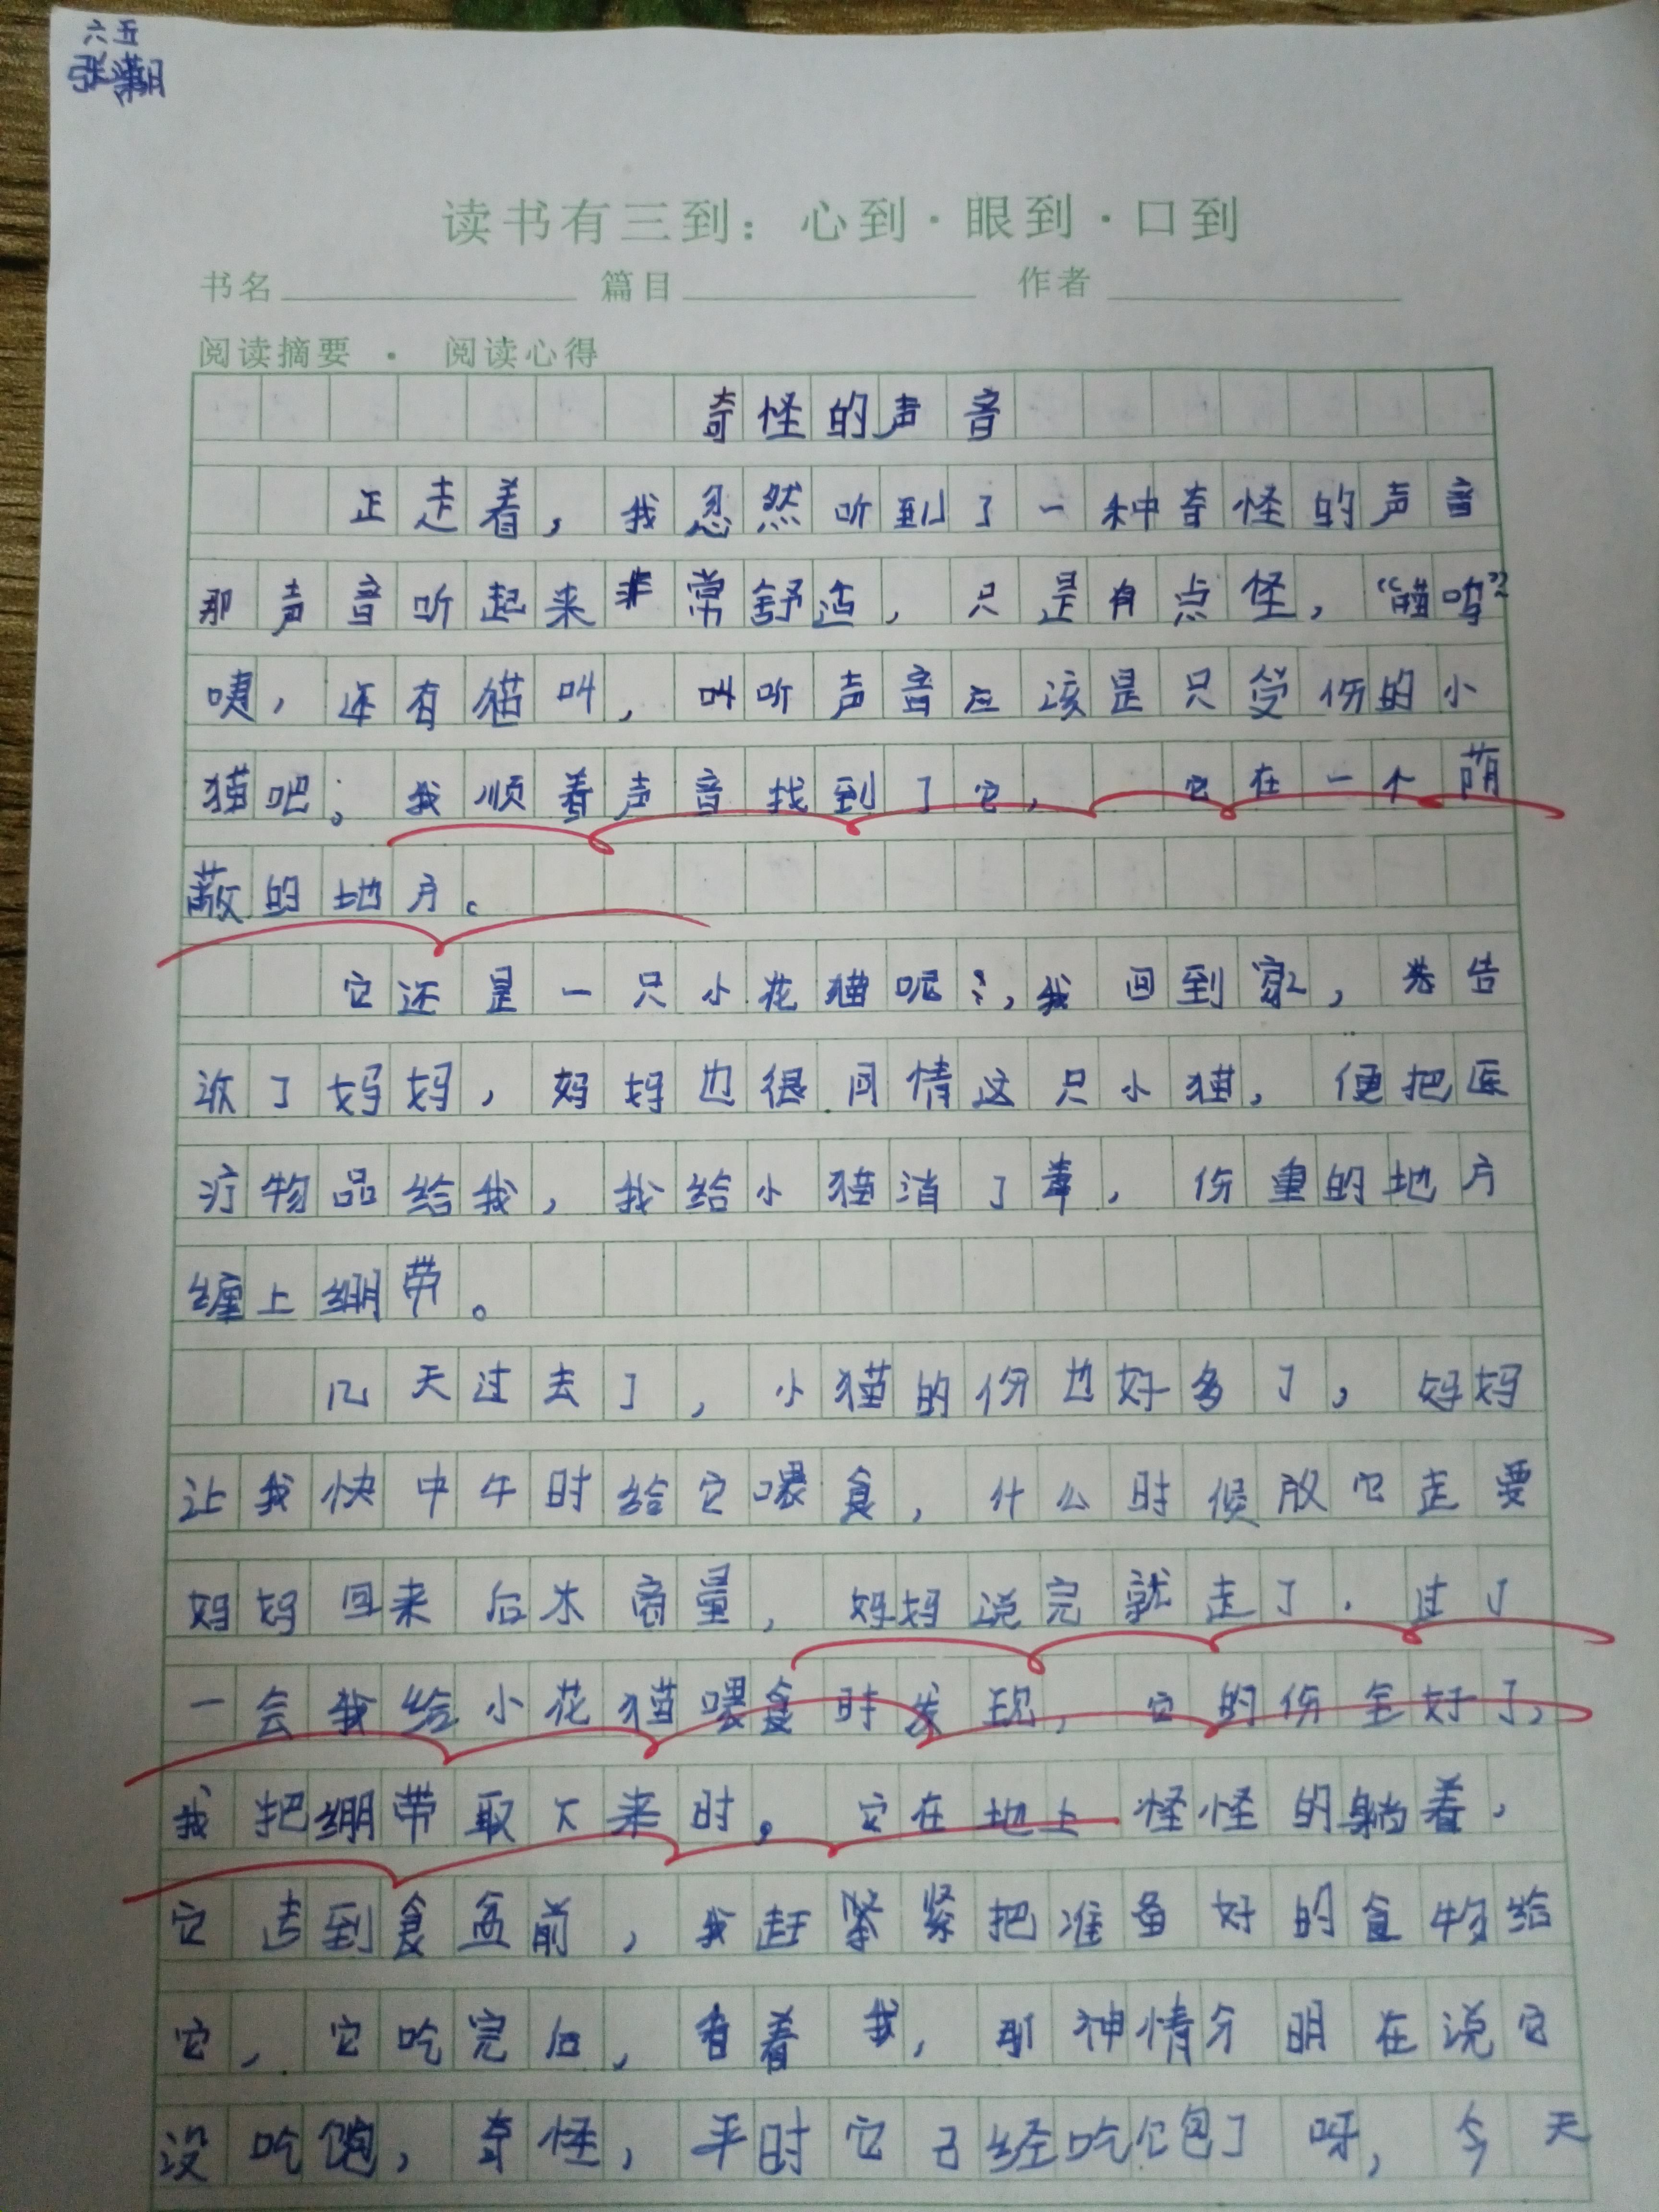 六五
读书有三到：心到·眼到·口到
书名 篇目 作者
阅读摘要 · 阅读心得
奇怪的声音
正走着，我忽然听到了一种奇怪的声音
那声音听起来非常舒适，只是有点怪，“喵呜”
咦，还有猫叫，叫听声音应该是只受伤的小
猫吧。我顺着声音找到了它，它在一个荫
蔽的地方。
它还是一只小花猫呢！，我回到家，告
诉了妈妈，妈妈也很同情这只小猫，便把医
疗物品给我，我给小猫消了毒，伤重的地方
缠上绷带。
几天过去了，小猫的伤也好多了，妈妈
让我快中午时给它喂食，什么时候放它走要
妈妈回来后水商量，妈妈说完就走了．过了
一会我给小花猫喂食时发现，它的伤全好了，
我把绷带取下来时。它在地上怪怪的躺着，
它走到食盒前，我赶紧紧把准备好的食物给
它，它吃完后，看着我，那神情分明在说它
没吃饱，奇怪，平时它己经吃饱了呀，今天